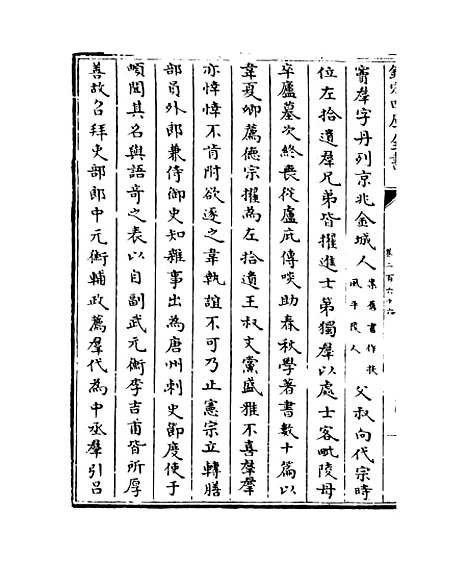 欽定四庫全書
卷二百六十六
竇羣字丹列京兆金城人案舊書作扶風平陵人父叔向代宗時
位左拾遺羣兄弟皆擢進士第獨羣以處士客毗陵母
卒廬墓次終喪從盧庇傳啖助春秋學著書數十篇以
韋夏卿薦德宗擢為左拾遺王叔文黨盛雅不喜羣羣
亦悻悻不肯附欲逐之韋執誼不可乃止憲宗立轉膳
部員外郎兼侍御史知雜事出為唐州刺史節度使于
頔聞其名與語奇之表以自副武元衡李吉甫皆所厚
善故召拜吏部郎中元衡輔政薦羣代為中丞羣引呂